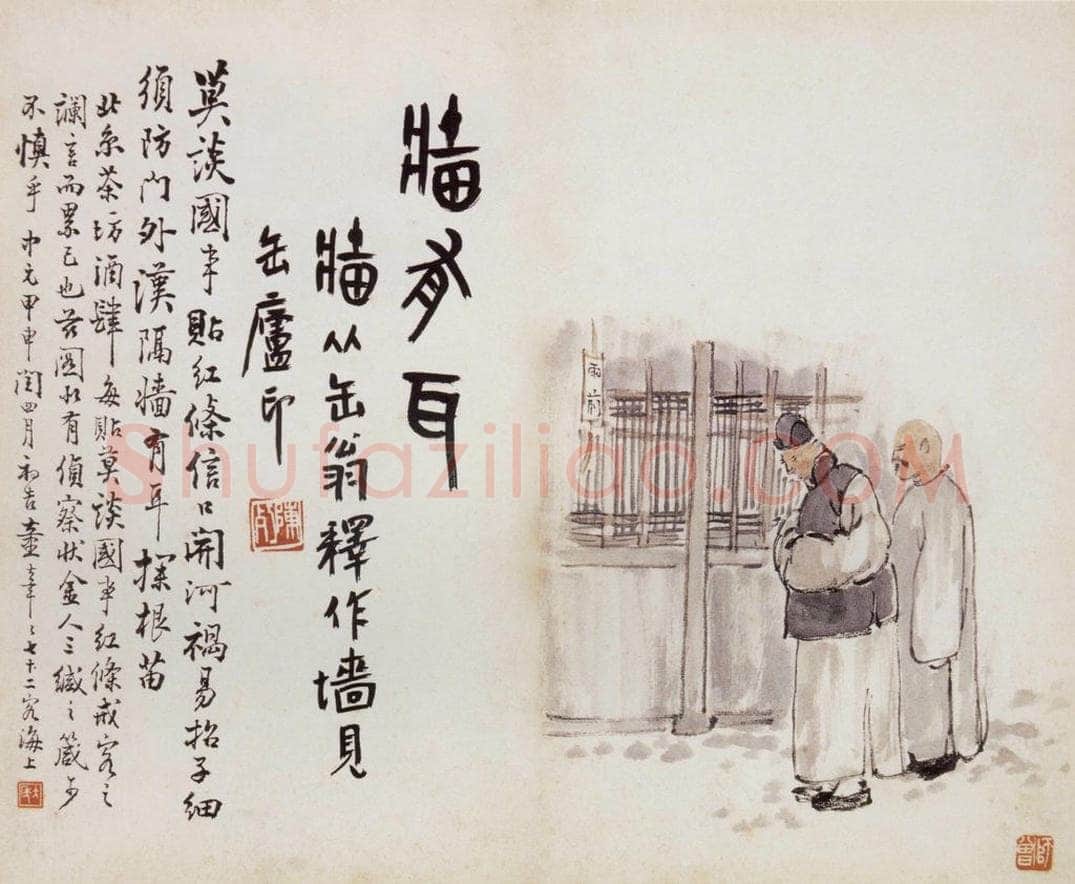 雨前
牆有耳
牆从缶翁釋作墻見
缶廬印
莫談國事貼紅條信口開河禍易招子細
須防門外漢隔墻有耳探根苗
此系茶坊酒肆每貼莫談國事紅條戒客之
讕言而累己也茲圖有偵察狀金人三緘之箴可
不慎乎中元甲申閏四月初吉童七十二客海上
師曾
Shufaziliao.COM